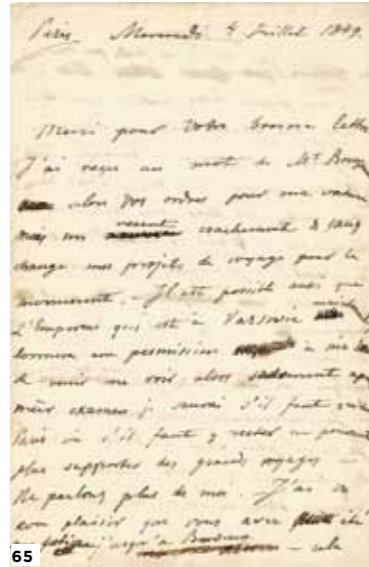 Paris, Mercredi 4 Juillet 1849.
Merci pour votre bonne lettre
J'ai reçu un mot de Mr
selon vos ordres pour ma
mais un récent crachement de sang
change mes projets de voyage pour le
moment. – Il est possible aussi que
L'Empereur qui est à Varsovie
donnera une permission à
de venir me voir, alors seulement
mûr examen je saurai s'il faut
Paris où s'il faut y rester ne pouvant
plus supporter des grands voyages –
Ne parlons plus de moi. J'ai
avec plaisir que vous avez été
jusqu'à Bordeaux – cela
65